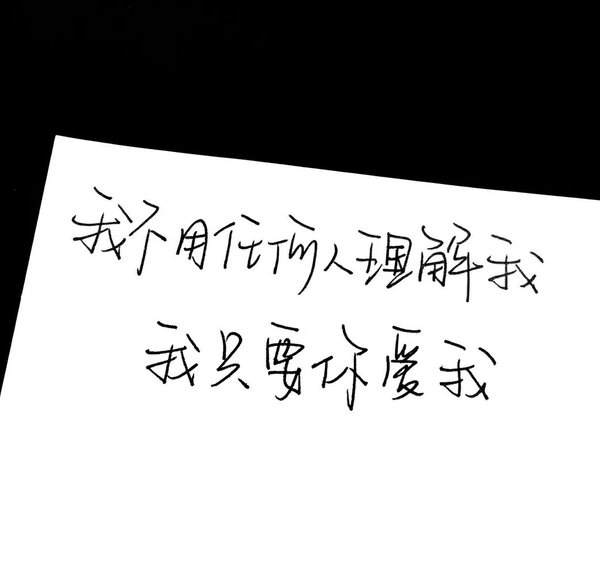 我不用任何人理解我
我只要你爱我